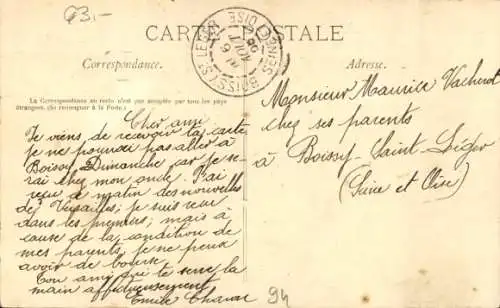 63.-
CARTE POSTALE
BOISSY-ST-LEGER
SEINE-ET-OISE
Correspondance.
Adresse.
La Correspondance au recto n'est pas acceptée par tous les pays
étrangers. (Se renseigner à la Poste.)
Cher ami
Je viens de recevoir ta carte
je ne pourrai pas aller à
Boissy Dimanche car je se-
rai chez mon oncle. J'ai
reçu ce matin des nouvelles
de Versailles; je suis reçu
dans les premiers; mais à
cause de la condition de
mes parents, je ne peux
avoir de bourse.
Ton ami qui te serre la
main affectueusement
Emile
Monsieur Maurice Vacherot
chez ses parents
à Boissy-Saint-Léger
(Seine et Oise)
94